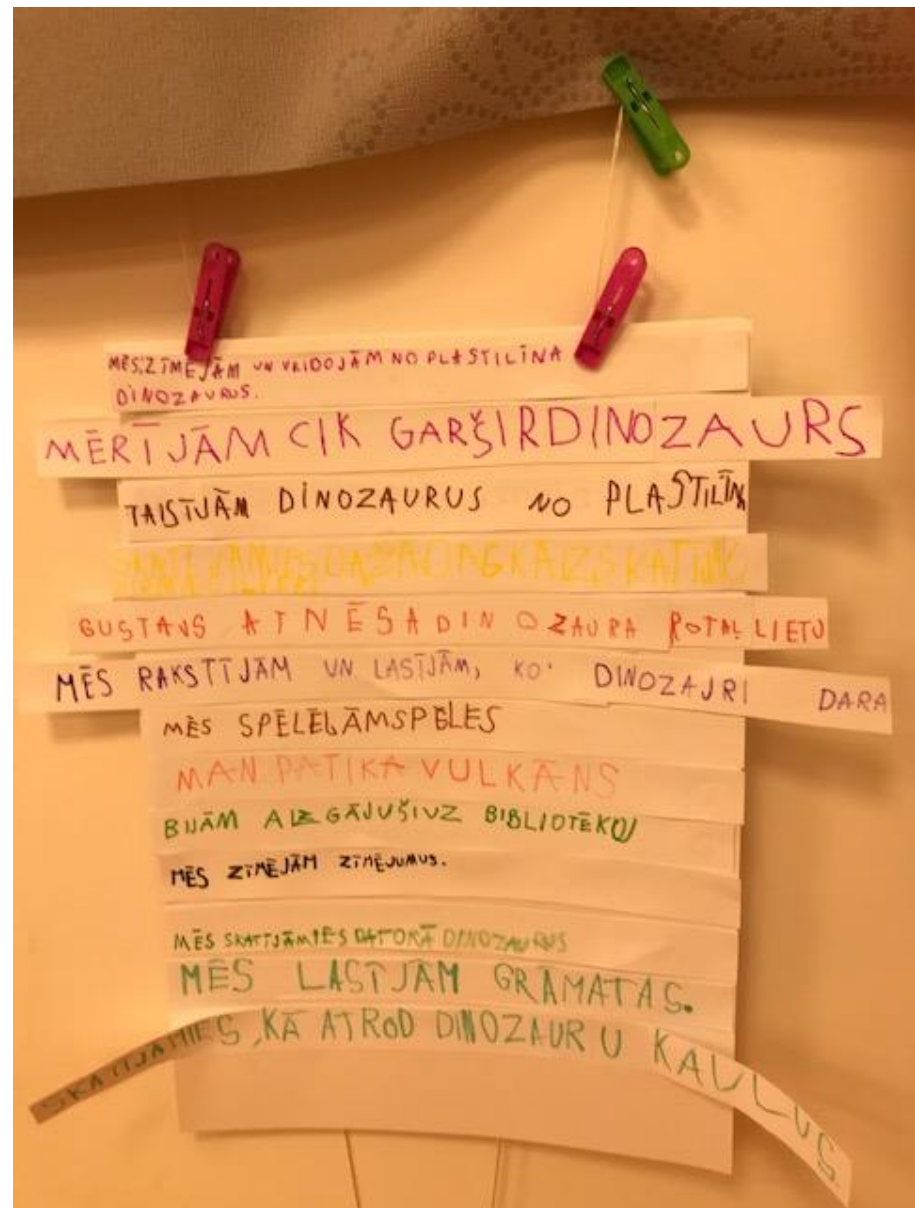 MĒS, ZĪMĒJĀM UN VEIDOJĀM NO PLASTILĪNA
DINOZAURUS.
MĒRĪJĀM CIK GARŠ IR DINOZAURS
TAISĪJĀM DINOZAURUS NO PLASTILĪNA
GUSTAVS ATNĒSA DINOZAURA ROTAĻLIETU
MĒS RAKSTĪJĀM UN LASĪJĀM, KO DINOZAJRI DARA
MĒS SPĒLĒJĀM SPĒLES
MAN PATIKA VULKĀNS
BIJĀM GĀJUŠI UZ BIBLIOTĒKU
MĒS ZĪMĒJĀM ZĪMĒJUMUS.
MĒS SKATĪJĀMIES DATORĀ DINOZAURUS
MĒS LASĪJĀM GRĀMATAS.
SKATĪJĀMIES, KĀ ATROD DINOZAURU KAULUS.